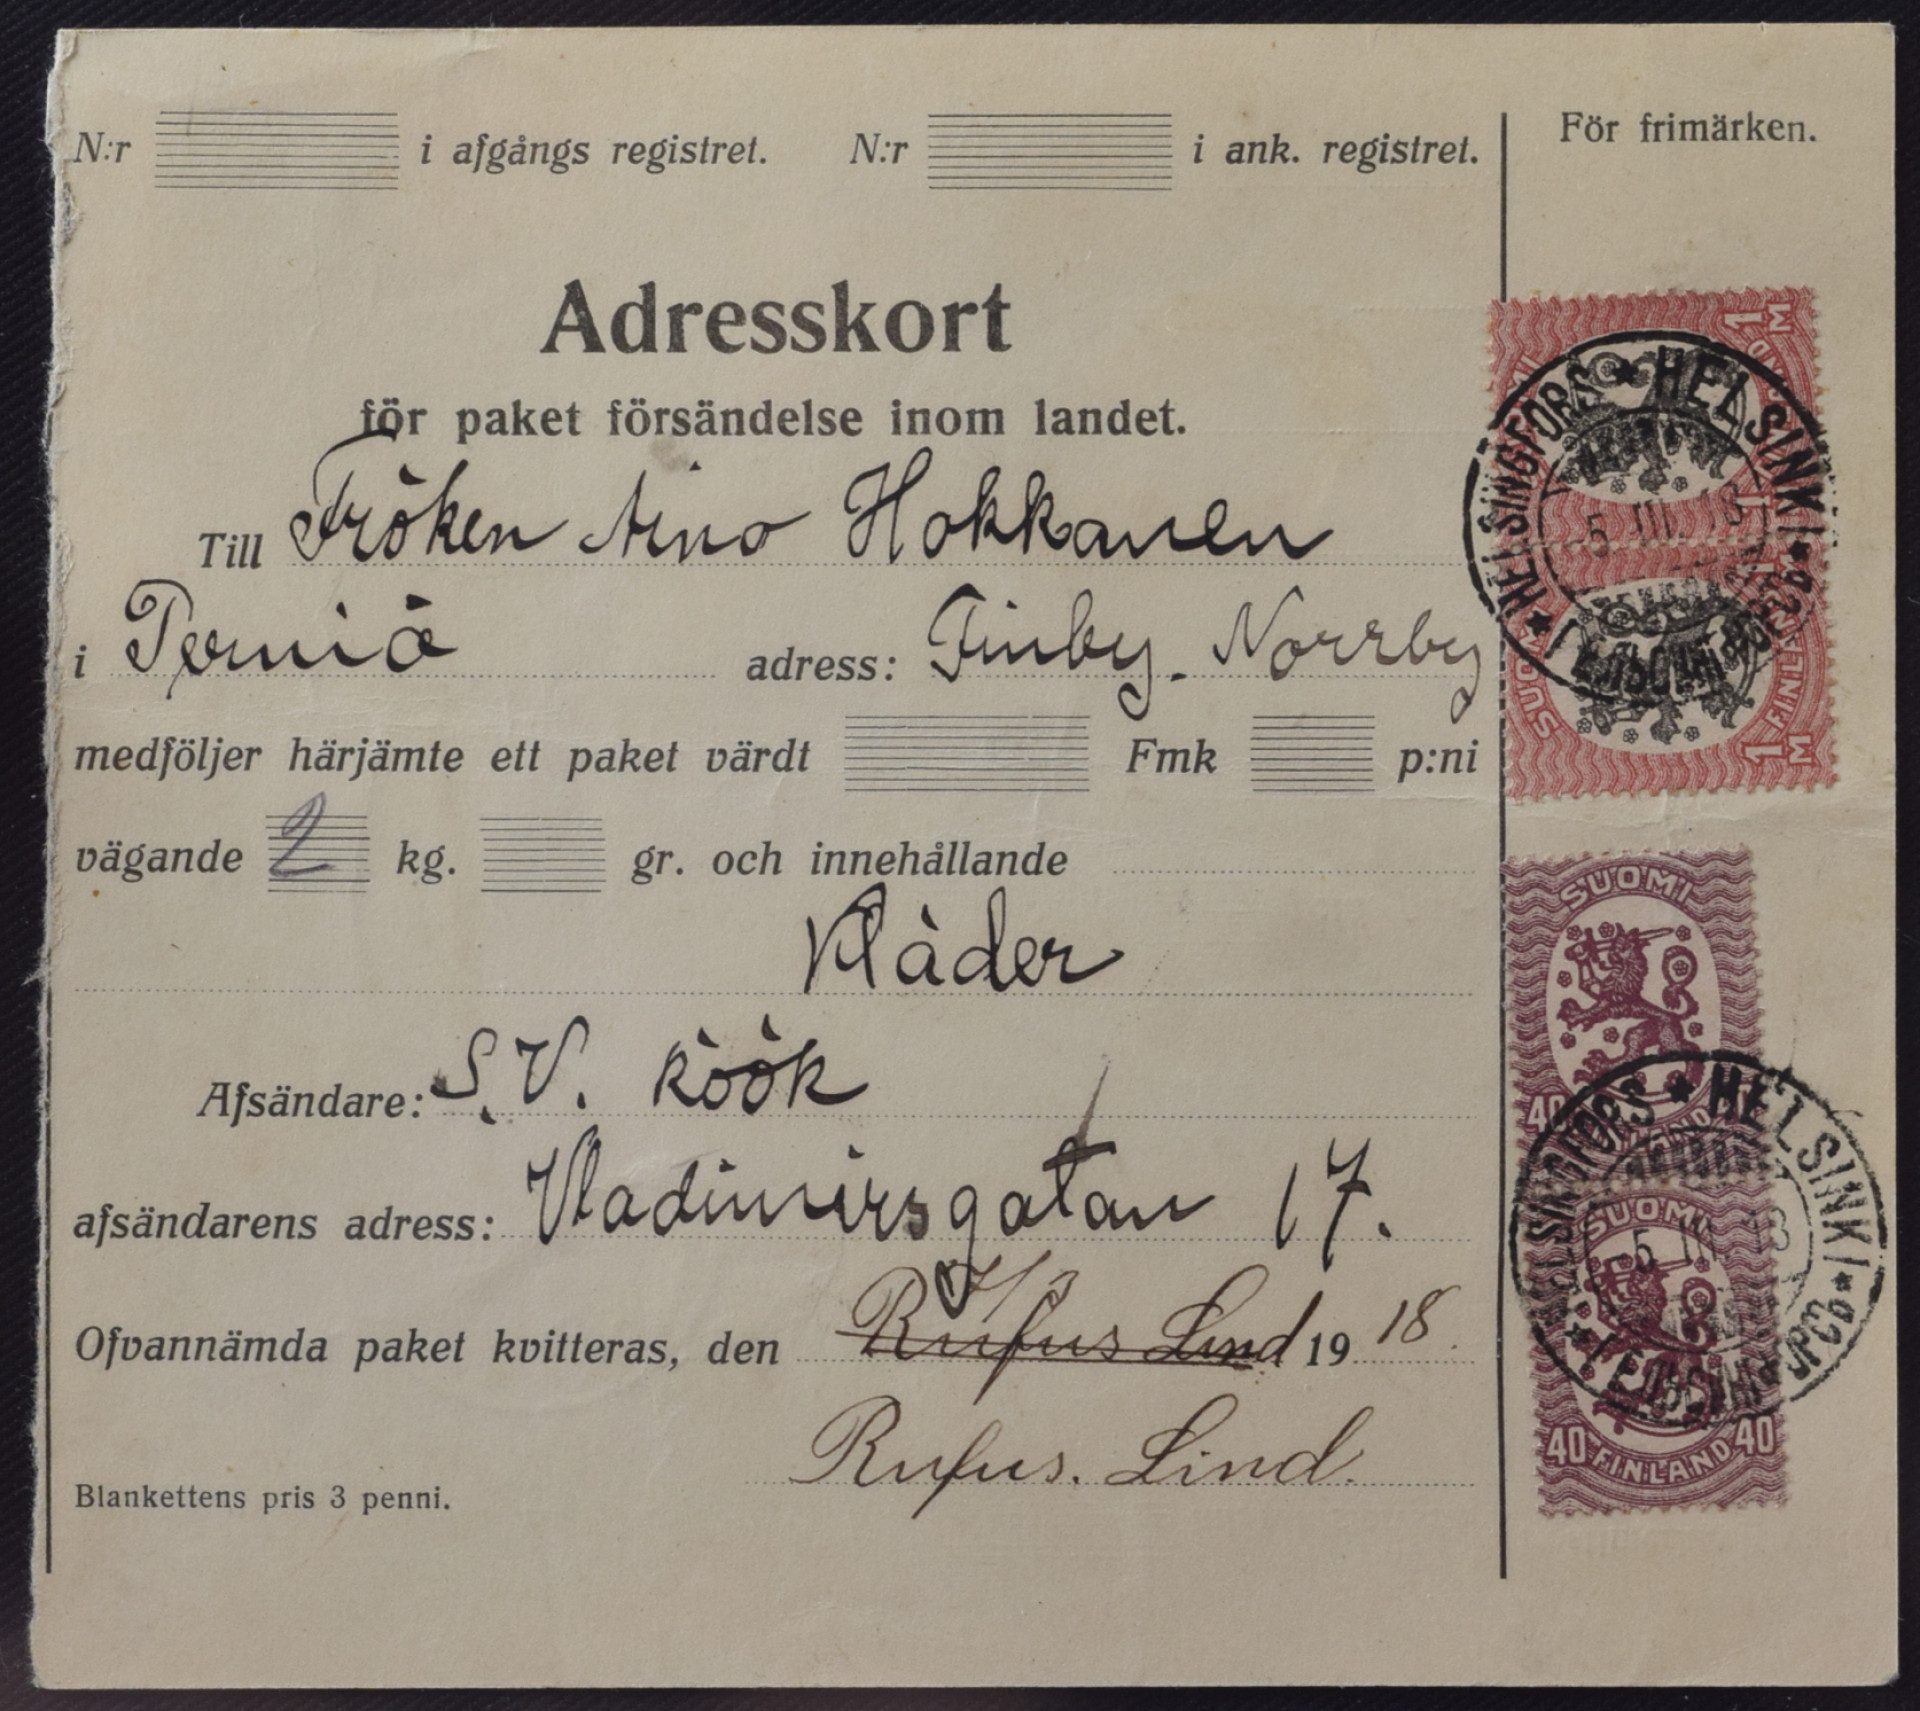 N:r i afgångs registret. N:r i ank. registret.
För frimärken.
Adresskort
för paket försändelse inom landet.
Till Fröken Aino Hokkanen
i Perniö adress: Finby. Norrby
medföljer härjämte ett paket värdt Fmk p:ni
vägande 2 kg. gr. och innehållande
Kläder
Afsändare: S.V. Köök
afsändarens adress: Vladimirsgatan 17.
Ofvannämda paket kvitteras, den Rufus Lind 1918
Rufus. Lind.
Blankettens pris 3 penni.
1 M
HELSINGFORS * HELSINKI
5 III 18
SUOMI FINLAND
1 M
SUOMI
40
HELSINGFORS * HELSINKI
SUOMI
5 III 18
40 FINLAND 40